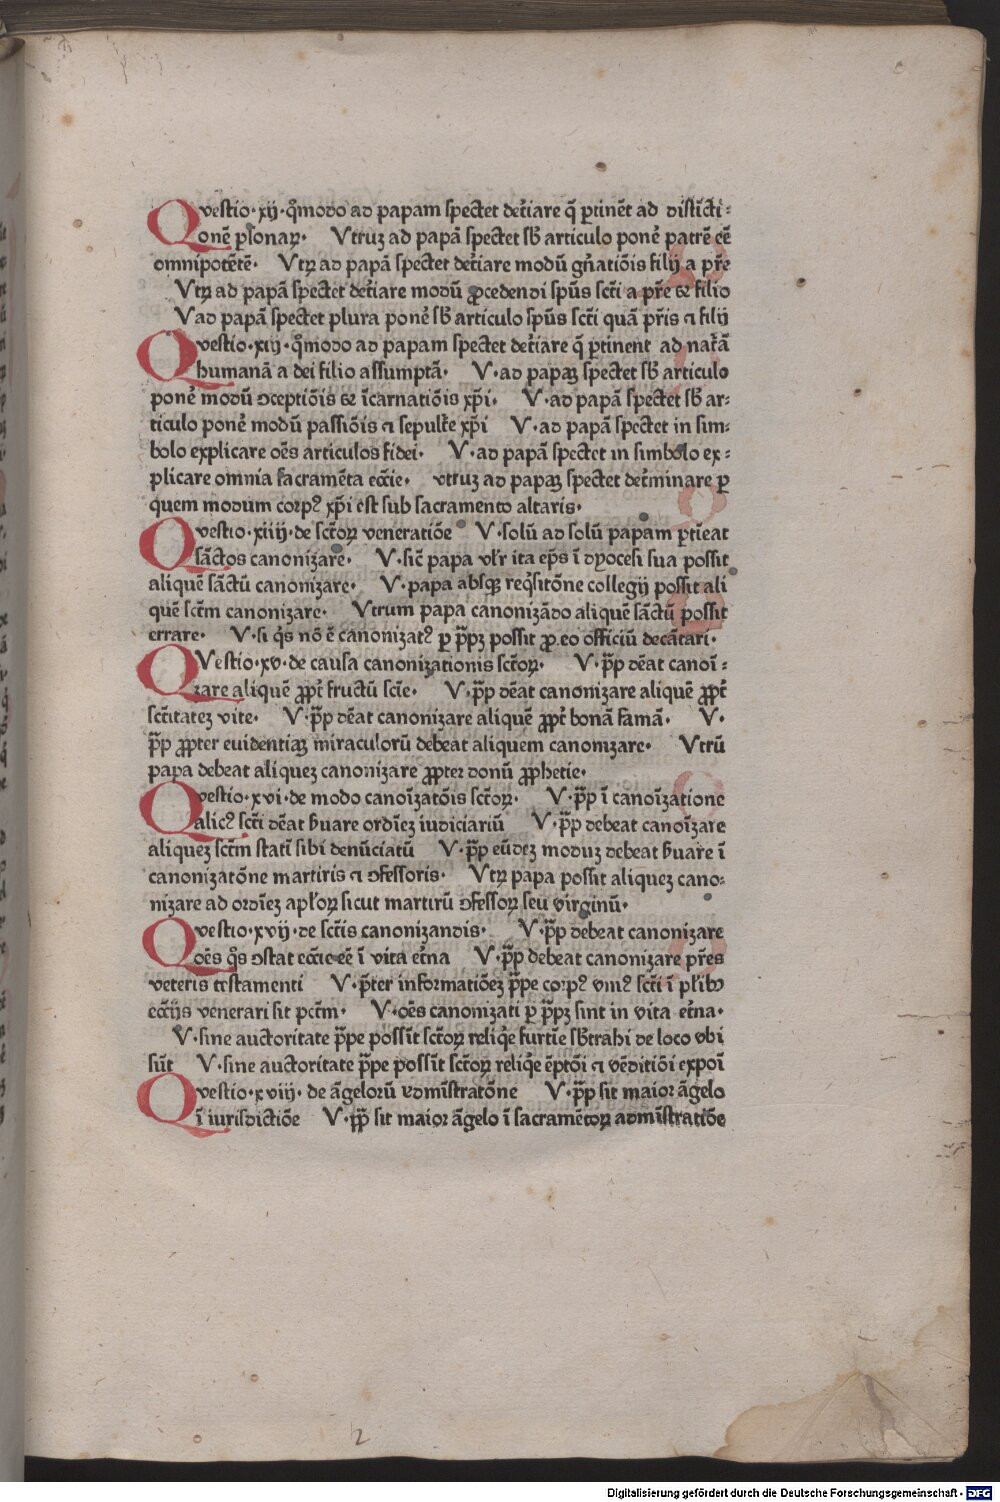 Qvestio·xij·qͦmodo ad papam spectet det̃iare q̃ ꝑtinẽt ad distĩcti⸗
onẽ ꝑsonaꝝ· Vtruꝫ ad papã spectet sƀ articulo ponẽ patrẽ eẽ
omnipotẽtẽ· Vtꝝ ad papã spectet det̃iare modũ gñatiõis filij a pr̃e
Vtꝝ ad papã spectet det̃iare modũ ꝓcedendi spũs sct̃i a pr̃e ⁊ filio
V ad papã spectet plura ponẽ sƀ articulo spũs sct̃i quã pr̃is ⁊ filij
Qvestio·xiij·qͦmodo ad papam spectet det̃iare q̃ ꝑtinent ad nat̃ã
humanã a dei filio assumptã· V·ad papaꝫ spectet sƀ articulo
ponẽ modũ ↄceptiõis ⁊ ĩcarnatiõis xp̃i· V·ad papã spectet sƀ ar⸗
ticulo ponẽ modũ passiõis ⁊ sepult̃e xp̃i V·ad papã spectet in sim⸗
bolo explicare oẽs articulos fidei· V·ad papã spectet in simbolo ex⸗
plicare omnia sacramẽta ecc̃ie· vtruꝫ ad papaꝫ spectet det̃minare ꝑ
quem modum corpꝰ xp̃i est sub sacramento altaris·
Qvestio·xiiij·de sct̃oꝝ veneratiõe V·solũ ad solũ papam ꝑtĩeat
sãctos canonizare· V·sic̃ papa vl̃r ita ep̃s ĩ dyocesi sua possit
aliquẽ sãctũ canonizare· V·papa absqꝫ req̃sitõne collegij possit ali
quẽ sct̃m canonizare· Vtrum papa canonizãdo aliquẽ sãctũ possit
errare· V·si qͥs nõ ẽ canonizatꝰ ꝑ p̃pꝫ possit ꝓ eo officiũ decãtari·
QVestio·xv·de causa canonizationis sct̃oꝝ· V·p̃p dẽat canoĩ⸗
zare aliquẽ ꝓpt̃ fructũ scĩe· V·p̃p dẽat canonizare aliquẽ ꝓpt̃
sct̃itateꝫ vite· V·p̃p dẽat canonizare aliquẽ ꝓpt̃ bonã famã· V·
p̃p ꝓpter euidentiaꝫ miraculorũ debeat aliquem canonizare· Vtrũ
papa debeat aliqueꝫ canonizare ꝓpter donũ ꝓphetie·
Qvestio·xvi·de modo canoĩzatõis sct̃oꝝ· V·p̃p ĩ canoĩzatione
alicꝰ sct̃i dẽat ẜuare ordĩeꝫ iudiciariũ V·p̃p debeat canoĩzare
aliqueꝫ sct̃m statĩ sibi denũciatũ V·p̃p eũdeꝫ moduꝫ debeat ẜuare ĩ
canonizatõne martiris ⁊ ↄfessoris· Vtꝝ papa possit aliqueꝫ cano⸗
nizare ad ordĩeꝫ apl̃oꝝ sicut martirũ ↄfessoꝝ seu virginũ·
Qvestio·xvij·de sct̃is canonizandis· V·p̃p debeat canonizare
oẽs qͦs ↄstat ecc̃ie eẽ ĩ vita et̃na V·p̃p debeat canonizare pr̃es
veteris testamenti V·p̃ter informatiõeꝫ p̃pe corpꝰ vniꝰ sct̃i ĩ pl̃ibꝰ
ecc̃ijs venerari sit pct̃m· V·oẽs canonizati ꝑ p̃pꝫ sint in vita et̃na·
V·sine auctoritate p̃pe possĩt sct̃oꝝ reliq̃e furtĩe sƀtrahi de loco vbi
sũt V·sine auctoritate p̃pe possĩt sct̃oꝝ reliq̃e ẽptõi ⁊ vẽditiõi expoĩ
Qvestio·xviij· de ãgelorũ admĩstratõne V·p̃p sit maior ãgelo
ĩ iurisdictiõe V·p̃p sit maior ãgelo ĩ sacramẽtoꝝ admĩstratiõe
2
Digitalisierung gefördert durch die Deutsche Forschungsgemeinschaft - DFG